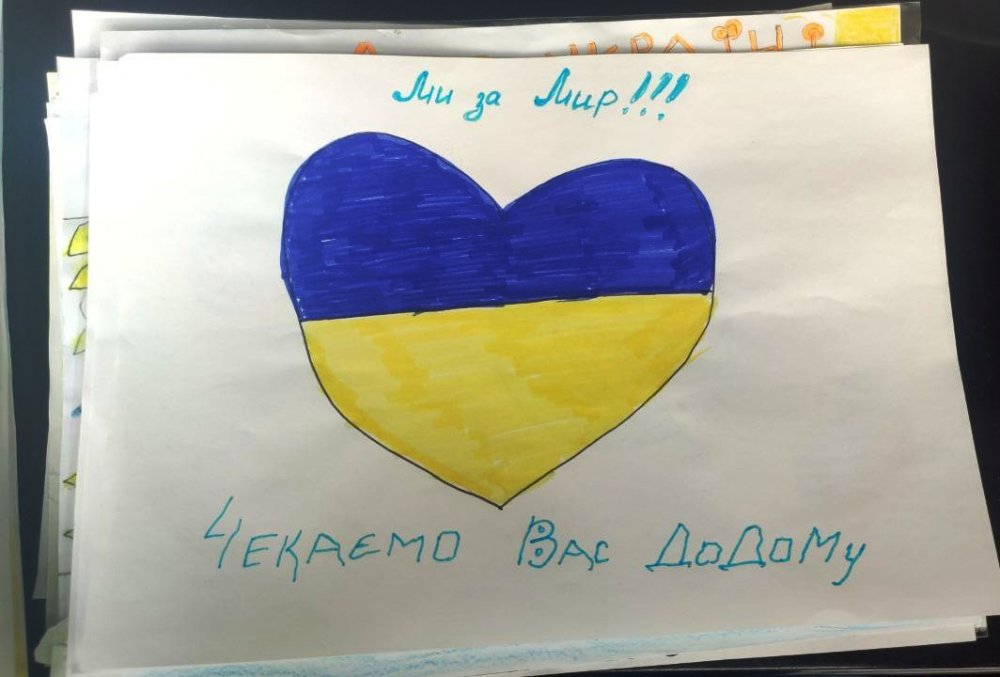 Ми за Мир!!!
Чекаємо Вас ДоДоМу